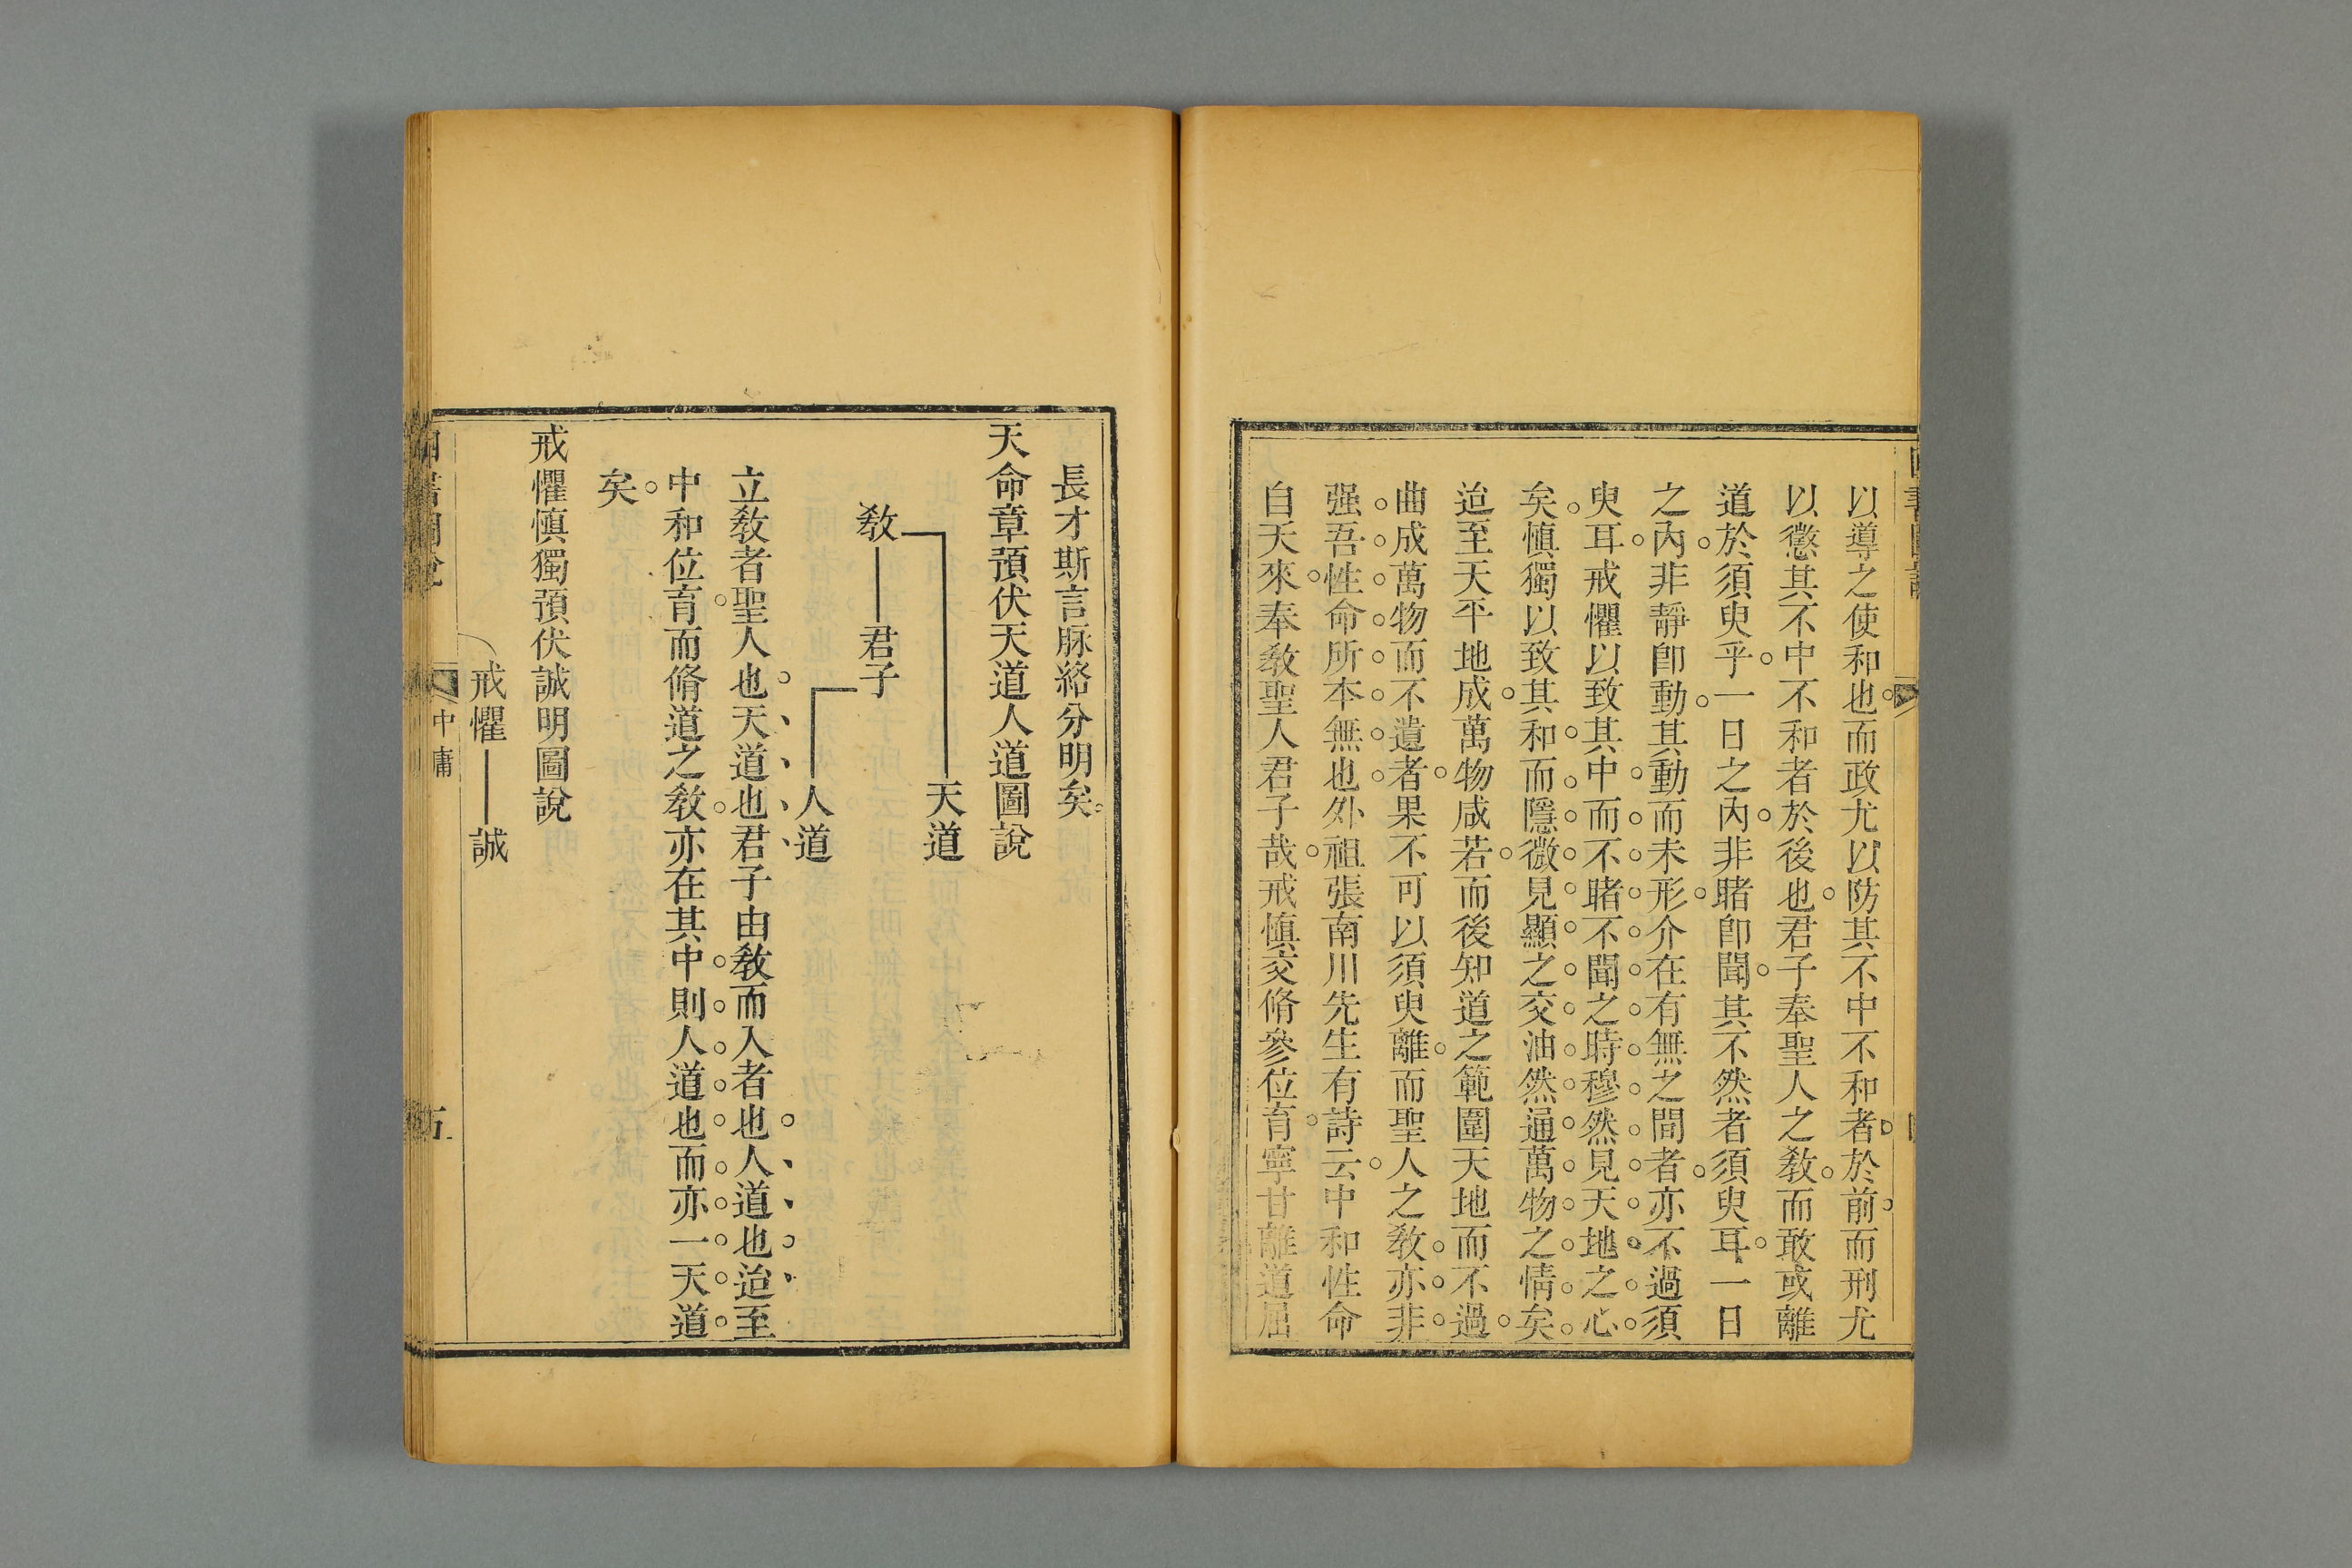 以導之使和也而政尤以防其不中不和者於前而刑尤
以懲其不中不和者於後也君子奉聖人之教而敢或離
道於須臾乎一日之內非睹卽聞其不然者須臾耳一日
之內非靜卽動其動而未形介在有無之間者亦不過須
臾耳戒懼以致其中而不睹不聞之時穆然見天地之心
矣慎獨以致其和而隱微見顯之交油然通萬物之情矣
迨至天平地成萬物咸若而後知道之範圍天地而不過
曲成萬物而不遺者果不可以須臾離而聖人之教亦非
强吾性命所本無也外祖張南川先生有詩云中和性命
自天來奉教聖人君子哉戒慎交脩參位育寧甘離道屈
長才斯言脉絡分明矣
天命章預伏天道人道圖說
天道
教 君子
人道
立教者聖人也天道也君子由教而入者也人道也迨至
中和位育而脩道之教亦在其中則人道也而亦一天道
矣
戒懼慎獨預伏誠明圖說
戒懼 誠
中庸